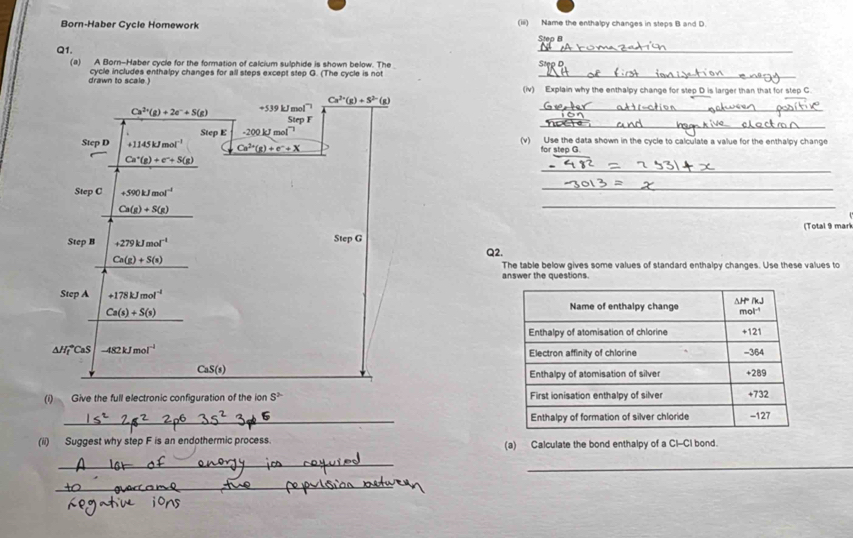 Born-Haber Cycle Homework
Q1.
(a) A Born–Haber cycle for the formation of calcium sulphide is shown below. The
cycle includes enthalpy changes for all steps except step G. (The cycle is not
drawn to scale.)
Ca²⁺(g) + 2e⁻ + S(g)
+539 kJ mol⁻¹
Ca²⁺(g) + S²⁻(g)
Step F
Step E
-200 kJ mol⁻¹
Step D
+1145 kJ mol⁻¹
Ca²⁺(g) + e⁻ + X
Ca⁺(g) + e⁻ + S(g)
Step C
+590 kJ mol⁻¹
Ca(g) + S(g)
Step B
+279 kJ mol⁻¹
Step G
Ca(g) + S(s)
Step A
+178 kJ mol⁻¹
Ca(s) + S(s)
ΔHf°CaS
–482 kJ mol⁻¹
CaS(s)
(i) Give the full electronic configuration of the ion S²⁻
1s² 2s² 2p6 3s² 3p6
(ii) Suggest why step F is an endothermic process.
A lot of energy is required
to overcome the repulsion between
negative ions
(iii) Name the enthalpy changes in steps B and D.
Step B
Step D
ΔH of first ionisation energy
(iv) Explain why the enthalpy change for step D is larger than that for step C.
Greater attraction between positive
ion
and negative electron
(v) Use the data shown in the cycle to calculate a value for the enthalpy change
for step G.
-482 = 2531 + x
-3013 = x
(Total 9 mark
Q2.
The table below gives some values of standard enthalpy changes. Use these values to
answer the questions.
Name of enthalpy change ΔH° /kJ
mol⁻¹
Enthalpy of atomisation of chlorine +121
Electron affinity of chlorine –364
Enthalpy of atomisation of silver +289
First ionisation enthalpy of silver +732
Enthalpy of formation of silver chloride –127
(a) Calculate the bond enthalpy of a Cl–Cl bond.